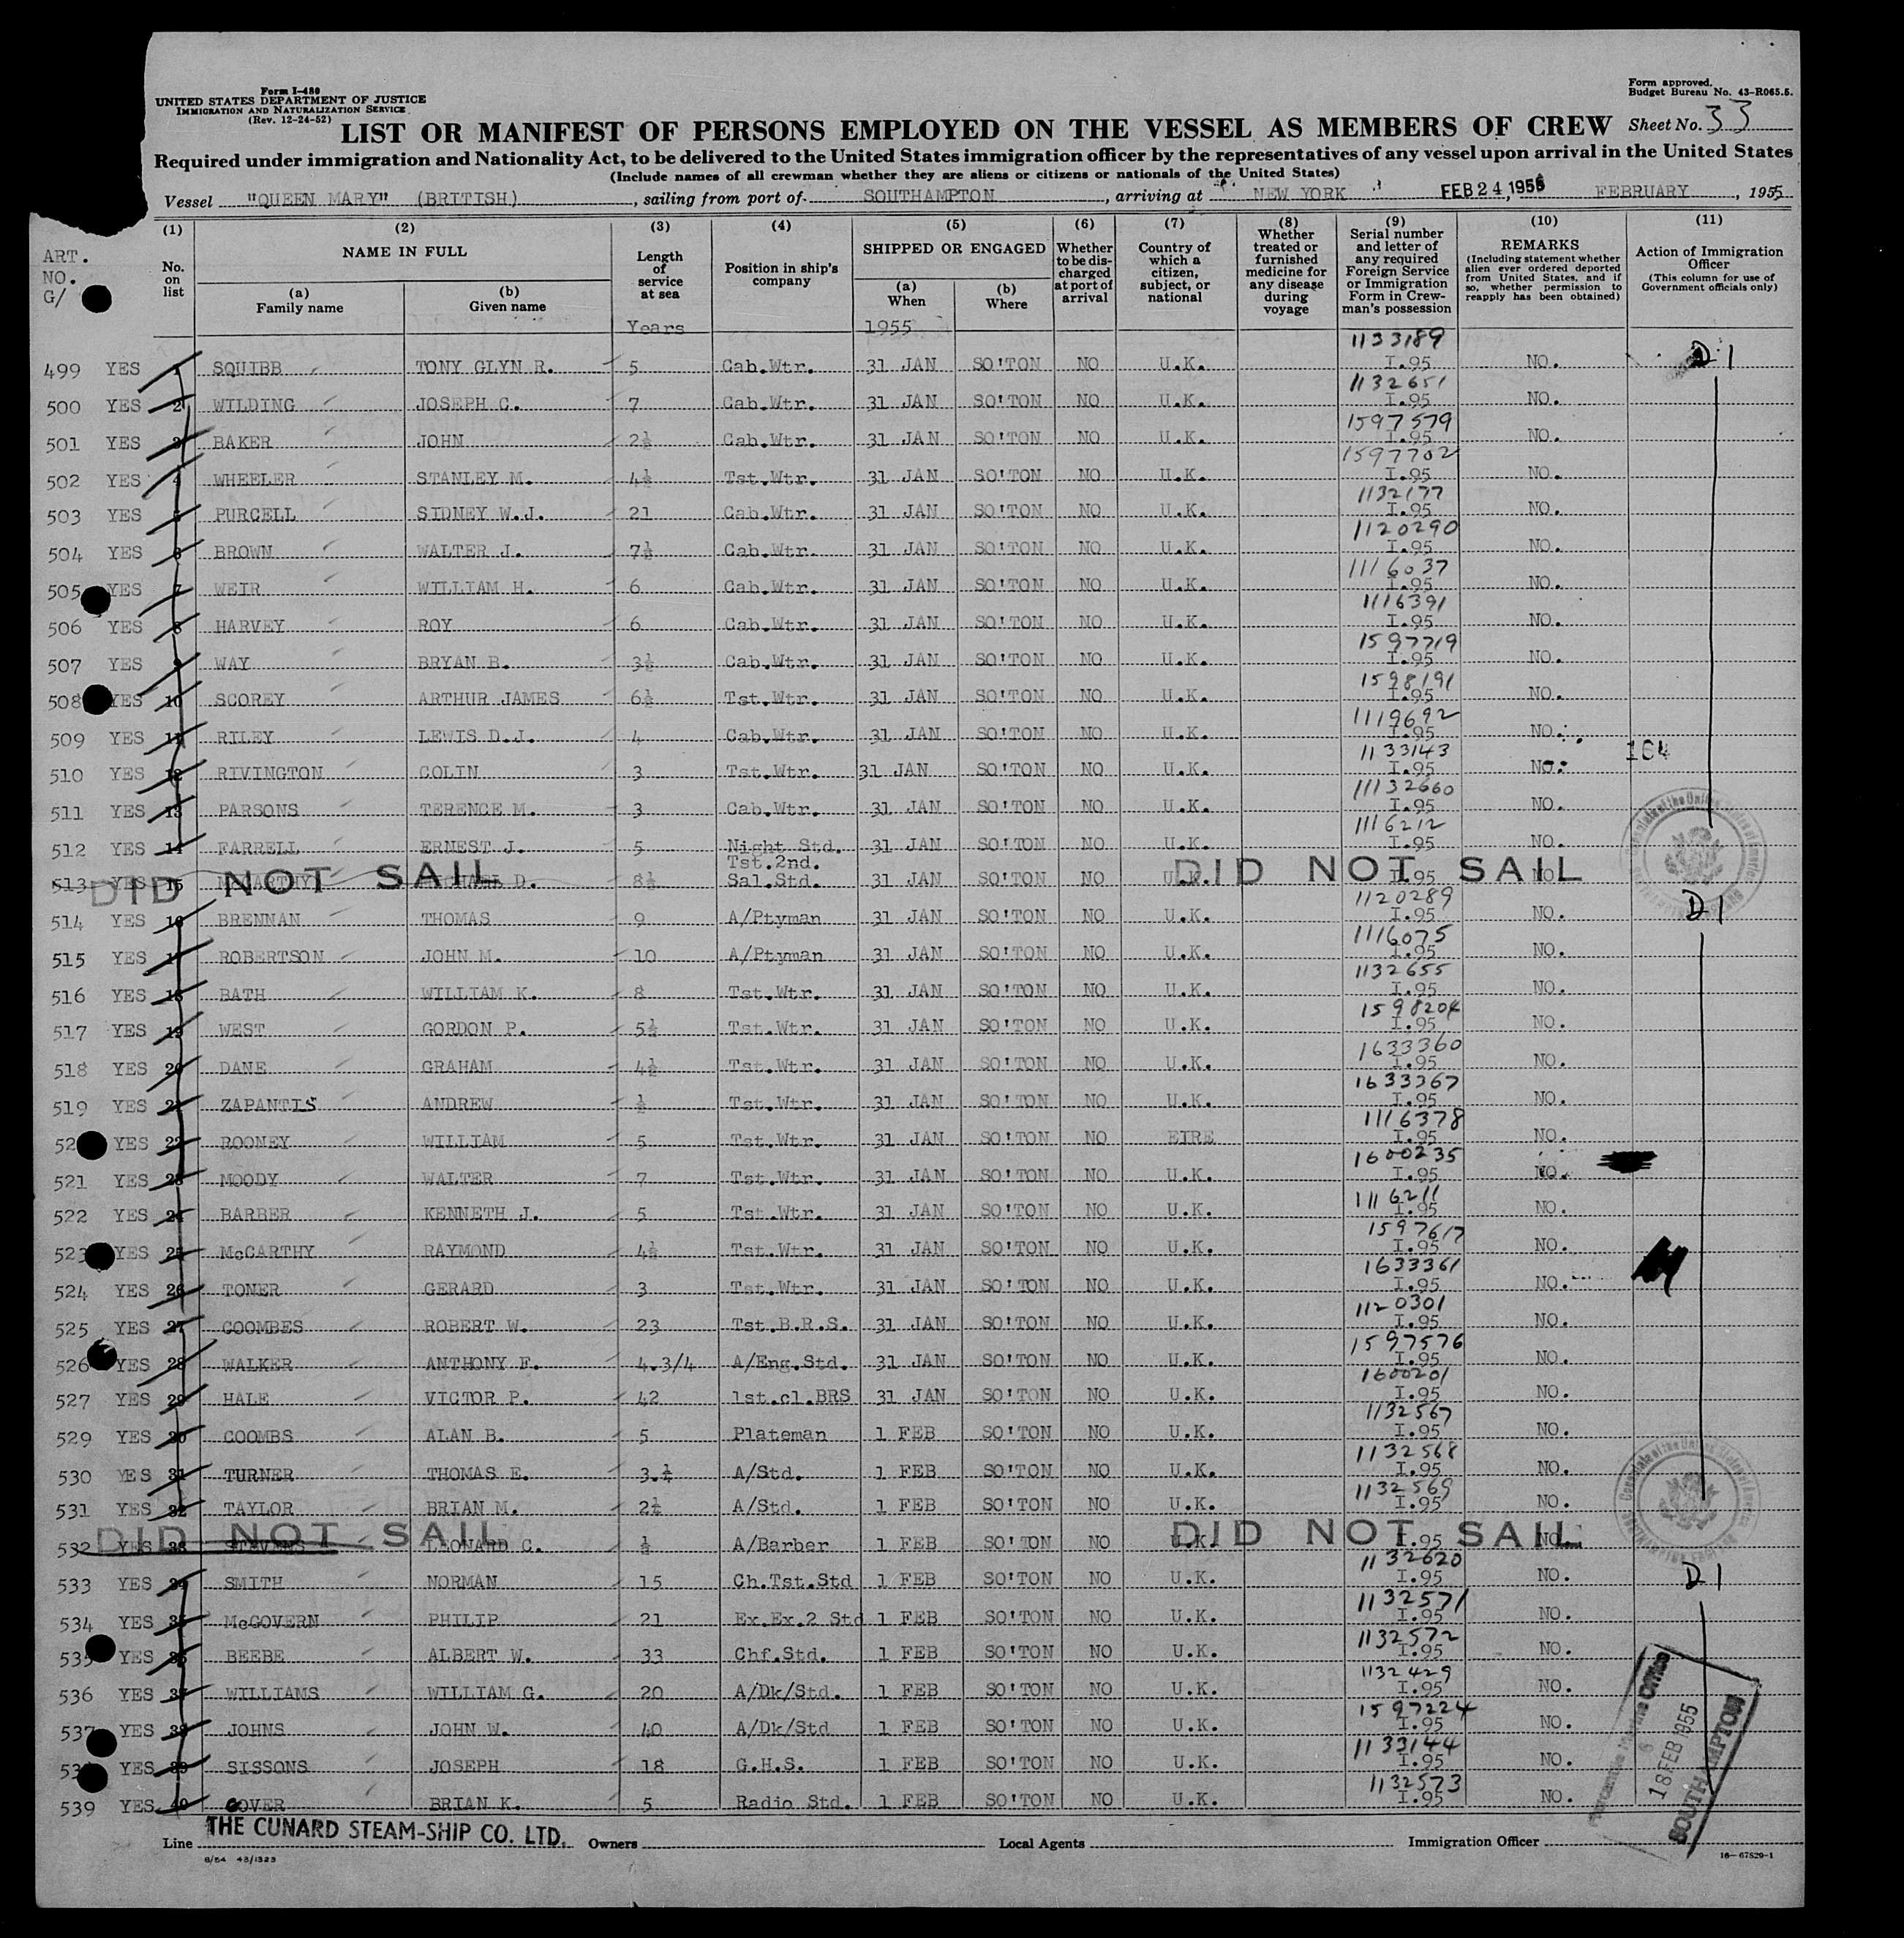 Form I-480
UNITED STATES DEPARTMENT OF JUSTICE
IMMIGRATION AND NATURALIZATION SERVICE
(Rev. 12-24-52)
Form approved.
Budget Bureau No. 43-R065.5.
LIST OR MANIFEST OF PERSONS EMPLOYED ON THE VESSEL AS MEMBERS OF CREW Sheet No. 33
Required under immigration and Nationality Act, to be delivered to the United States immigration officer by the representatives of any vessel upon arrival in the United States
(Include names of all crewman whether they are aliens or citizens or nationals of the United States)
Vessel "QUEEN MARY" (BRITISH), sailing from port of SOUTHAMPTON, arriving at NEW YORK FEB 24, 1955 FEBRUARY, 1955
ART. NO. G/
(1) No. on list
(2) NAME IN FULL (a) Family name (b) Given name
(3) Length of service at sea Years
(4) Position in ship's company
(5) SHIPPED OR ENGAGED (a) When 1955 (b) Where
(6) Whether to be discharged at port of arrival
(7) Country of which a citizen, subject, or national
(8) Whether treated or furnished medicine for any disease during voyage
(9) Serial number and letter of any required Foreign Service or Immigration Form in Crewman's possession
(10) REMARKS (Including statement whether alien ever ordered deported from United States, and if so, whether permission to reapply has been obtained)
(11) Action of Immigration Officer (This column for use of Government officials only)
499 YES 1 SQUIBB TONY GLYN R. 5 Cab.Wtr. 31 JAN SO'TON NO U.K. 1133189 I.95 NO. D 1
500 YES 2 WILDING JOSEPH C. 7 Cab.Wtr. 31 JAN SO'TON NO U.K. 1132651 I.95 NO.
501 YES 3 BAKER JOHN 2½ Cab.Wtr. 31 JAN SO'TON NO U.K. 1597579 I.95 NO.
502 YES 4 WHEELER STANLEY M. 4½ Tst.Wtr. 31 JAN SO'TON NO U.K. 1597702 I.95 NO.
503 YES 5 PURCELL SIDNEY W.J. 21 Cab.Wtr. 31 JAN SO'TON NO U.K. 1132177 I.95 NO.
504 YES 6 BROWN WALTER J. 7½ Cab.Wtr. 31 JAN SO'TON NO U.K. 1120290 I.95 NO.
505 YES 7 WEIR WILLIAM H. 6 Cab.Wtr. 31 JAN SO'TON NO U.K. 1116037 I.95 NO.
506 YES 8 HARVEY ROY 6 Cab.Wtr. 31 JAN SO'TON NO U.K. 1116391 I.95 NO.
507 YES 9 WAY BRYAN B. 3½ Cab.Wtr. 31 JAN SO'TON NO U.K. 1597719 I.95 NO.
508 YES 10 SCOREY ARTHUR JAMES 6½ Tst.Wtr. 31 JAN SO'TON NO U.K. 1598191 I.95 NO.
509 YES 11 RILEY LEWIS D.J. 4 Cab.Wtr. 31 JAN SO'TON NO U.K. 1119692 I.95 NO.
510 YES 12 RIVINGTON COLIN 3 Tst.Wtr. 31 JAN SO'TON NO U.K. 1133143 I.95 NO. 164
511 YES 13 PARSONS TERENCE M. 3 Cab.Wtr. 31 JAN SO'TON NO U.K. 11132660 I.95 NO.
512 YES 14 FARRELL ERNEST J. 5 Night Std. 31 JAN SO'TON NO U.K. 1116212 I.95 NO.
513 YES 15 McCARTHY MICHAEL D. 8½ Tst.2nd. Sal.Std. 31 JAN SO'TON NO U.K. I.95 NO
DID NOT SAIL DID NOT SAIL
514 YES 16 BRENNAN THOMAS 9 A/Ptyman 31 JAN SO'TON NO U.K. 1120289 I.95 NO. D 1
515 YES 17 ROBERTSON JOHN M. 10 A/Ptyman 31 JAN SO'TON NO U.K. 1116075 I.95 NO.
516 YES 18 BATH WILLIAM K. 8 Tst.Wtr. 31 JAN SO'TON NO U.K. 1132655 I.95 NO.
517 YES 19 WEST GORDON P. 5½ Tst.Wtr. 31 JAN SO'TON NO U.K. 1598204 I.95 NO.
518 YES 20 DANE GRAHAM 4½ Tst.Wtr. 31 JAN SO'TON NO U.K. 1633360 I.95 NO.
519 YES 21 ZAPANTIS ANDREW ½ Tst.Wtr. 31 JAN SO'TON NO U.K. 1633367 I.95 NO.
52 YES 22 ROONEY WILLIAM 5 Tst.Wtr. 31 JAN SO'TON NO EIRE 1116378 I.95 NO.
521 YES 23 MOODY WALTER 7 Tst.Wtr. 31 JAN SO'TON NO U.K. 1600235 I.95 NO.
522 YES 24 BARBER KENNETH J. 5 Tst.Wtr. 31 JAN SO'TON NO U.K. 1116211 I.95 NO.
523 YES 25 McCARTHY RAYMOND 4½ Tst.Wtr. 31 JAN SO'TON NO U.K. 1597617 I.95 NO.
524 YES 26 TONER GERARD 3 Tst.Wtr. 31 JAN SO'TON NO U.K. 1633361 I.95 NO.
525 YES 27 COOMBES ROBERT W. 23 Tst.B.R.S. 31 JAN SO'TON NO U.K. 1120301 I.95 NO.
526 YES 28 WALKER ANTHONY F. 4.3/4 A/Eng.Std. 31 JAN SO'TON NO U.K. 1597576 I.95 NO.
527 YES 29 HALE VICTOR P. 42 1st.cl.BRS 31 JAN SO'TON NO U.K. 1600201 I.95 NO.
529 YES 30 COOMBS ALAN B. 5 Plateman 1 FEB SO'TON NO U.K. 1132567 I.95 NO.
530 YES 31 TURNER THOMAS E. 3.¼ A/Std. 1 FEB SO'TON NO U.K. 1132568 I.95 NO.
531 YES 32 TAYLOR BRIAN M. 2¼ A/Std. 1 FEB SO'TON NO U.K. 1132569 I.95 NO.
532 YES 33 STEVENS LEONARD C. ½ A/Barber 1 FEB SO'TON NO U.K. I.95 NO.
DID NOT SAIL DID NOT SAIL
533 YES 34 SMITH NORMAN 15 Ch.Tst.Std 1 FEB SO'TON NO U.K. 1132620 I.95 NO. D 1
534 YES 35 McGOVERN PHILIP 21 Ex.Ex.2 Std 1 FEB SO'TON NO U.K. 1132571 I.95 NO.
535 YES 36 BEEBE ALBERT W. 33 Chf.Std. 1 FEB SO'TON NO U.K. 1132572 I.95 NO.
536 YES 37 WILLIAMS WILLIAM G. 20 A/Dk/Std. 1 FEB SO'TON NO U.K. 1132429 I.95 NO.
537 YES 38 JOHNS JOHN W. 40 A/Dk/Std 1 FEB SO'TON NO U.K. 1597224 I.95 NO.
53 YES 39 SISSONS JOSEPH 18 G.H.S. 1 FEB SO'TON NO U.K. 1133144 I.95 NO.
539 YES 40 COVER BRIAN K. 5 Radio Std. 1 FEB SO'TON NO U.K. 1132573 I.95 NO.
Mercantile Marine Office
18 FEB 1955
SOUTHAMPTON
Line THE CUNARD STEAM-SHIP CO. LTD. Owners Local Agents Immigration Officer
6/54 43/1323
16-67829-1